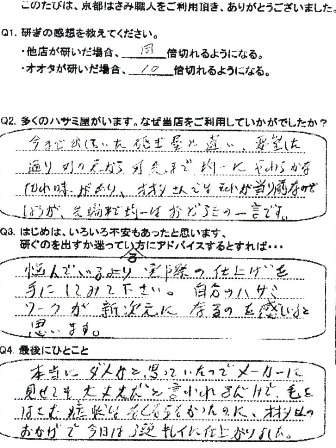 このたびは、京都はさみ職人をご利用頂き、ありがとうございました。
Q1. 研ぎの感想を教えてください。
・他店が研いだ場合、 倍切れるようになる。
・オオタが研いだ場合、 10 倍切れるようになる。
Q2. 多くのハサミ屋がいます。なぜ当店をご利用していかがでしたか?
今まで出していた研ぎ屋と違い、要望した
通り刃の元から刃先まで均一に やわらかな
切れ味であり、オオタさんではそれが当り前なので
しょうが、先端まで均一は おどろきの一言です。
Q3. はじめは、いろいろ不安もあったと思います、
研ぐのを出すか迷ってい方にアドバイスするとすれば・・・
る
悩んでいるより 実際の仕上げを
手にしてみて下さい。 自分のハサミ
ワークが 新次元に なるのを感じると
思います。
Q4 最後にひとこと
本当に ダメかと思っていたので メーカーに
見せても 大丈夫だと言われるんけど、毛を
はさむ症状は なくならなかったのに、オオタさんの
おかげで今回は キレイに仕上がりました。